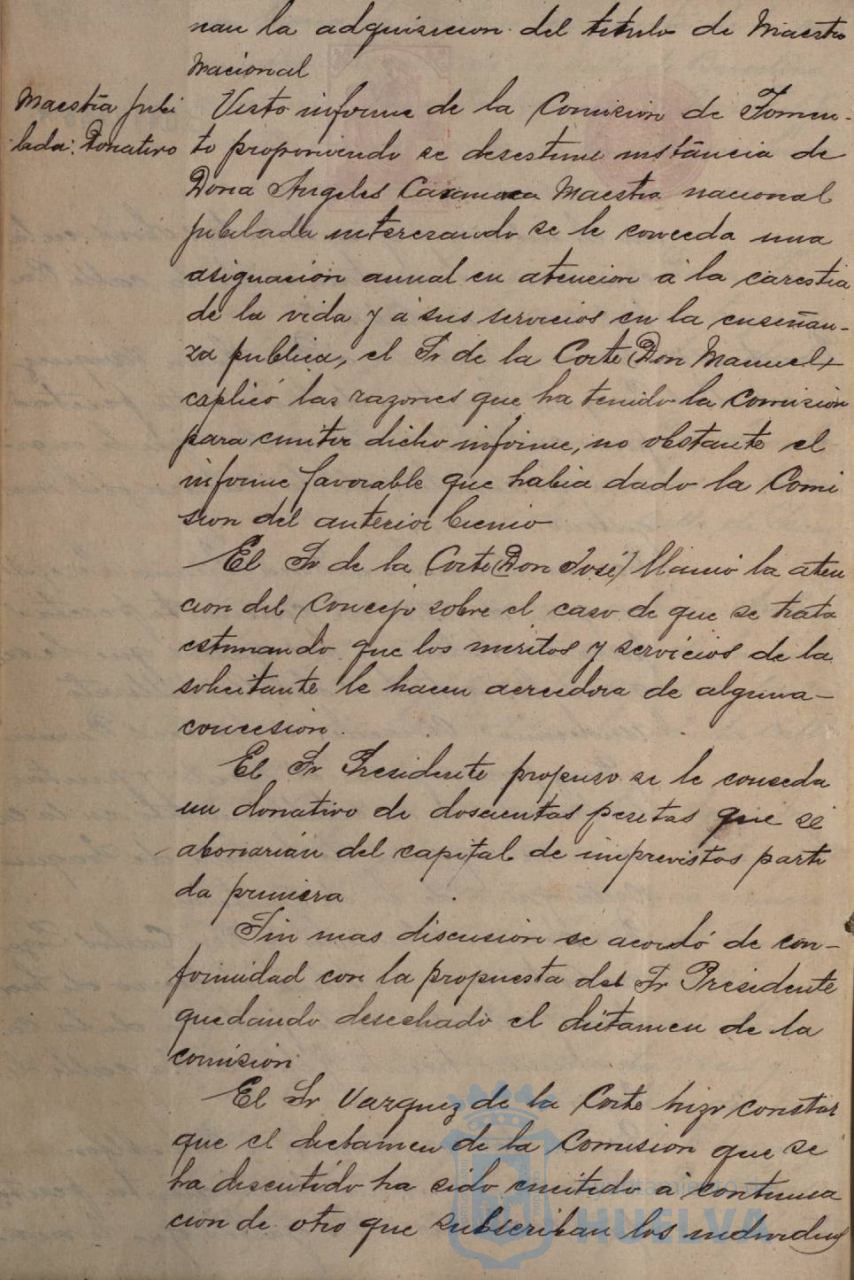 nan la adquisicion del titulo de Maestro
Nacional
Maestra jubi
lada: Donativo
Visto informe de la Comision de Fomen-
to proponiendo se desestime instancia de
Doña Angeles Maestra nacional
jubilada interesando se le conceda una
asignación annal en atencion á la carestia
de la vida y á sus servicios en la enseñan-
za publica, el Sr de la Corte (Don Manuel)
explicó las razones que ha tenido la Comisión
para emitir dicho informe, no obstante el
informe favorable que habia dado la Comi
sion del anterior bienio
El Sr de la Corte (Don José) llamó la aten
cion del Concejo sobre el caso de que se trata
estimando que los meritos y servicios de la
solicitante le hacen acreedora de alguna-
concesión.
El Sr Presidente propuso se le conseda
un donativo de doscientas pesetas que se
abonarian del capital de imprevistos parti
da primera
Sin mas discusion se acordó de con-
formidad con la propuesta del Sr Presidente
quedando desechado el dictamen de la
comisión
El Sr Vazquez de la Corte hizo constar
que el dictamen de la Comision que se
ha discutido ha sido emitido á continua
cion de otro que subscriban los individuos
HUELVA